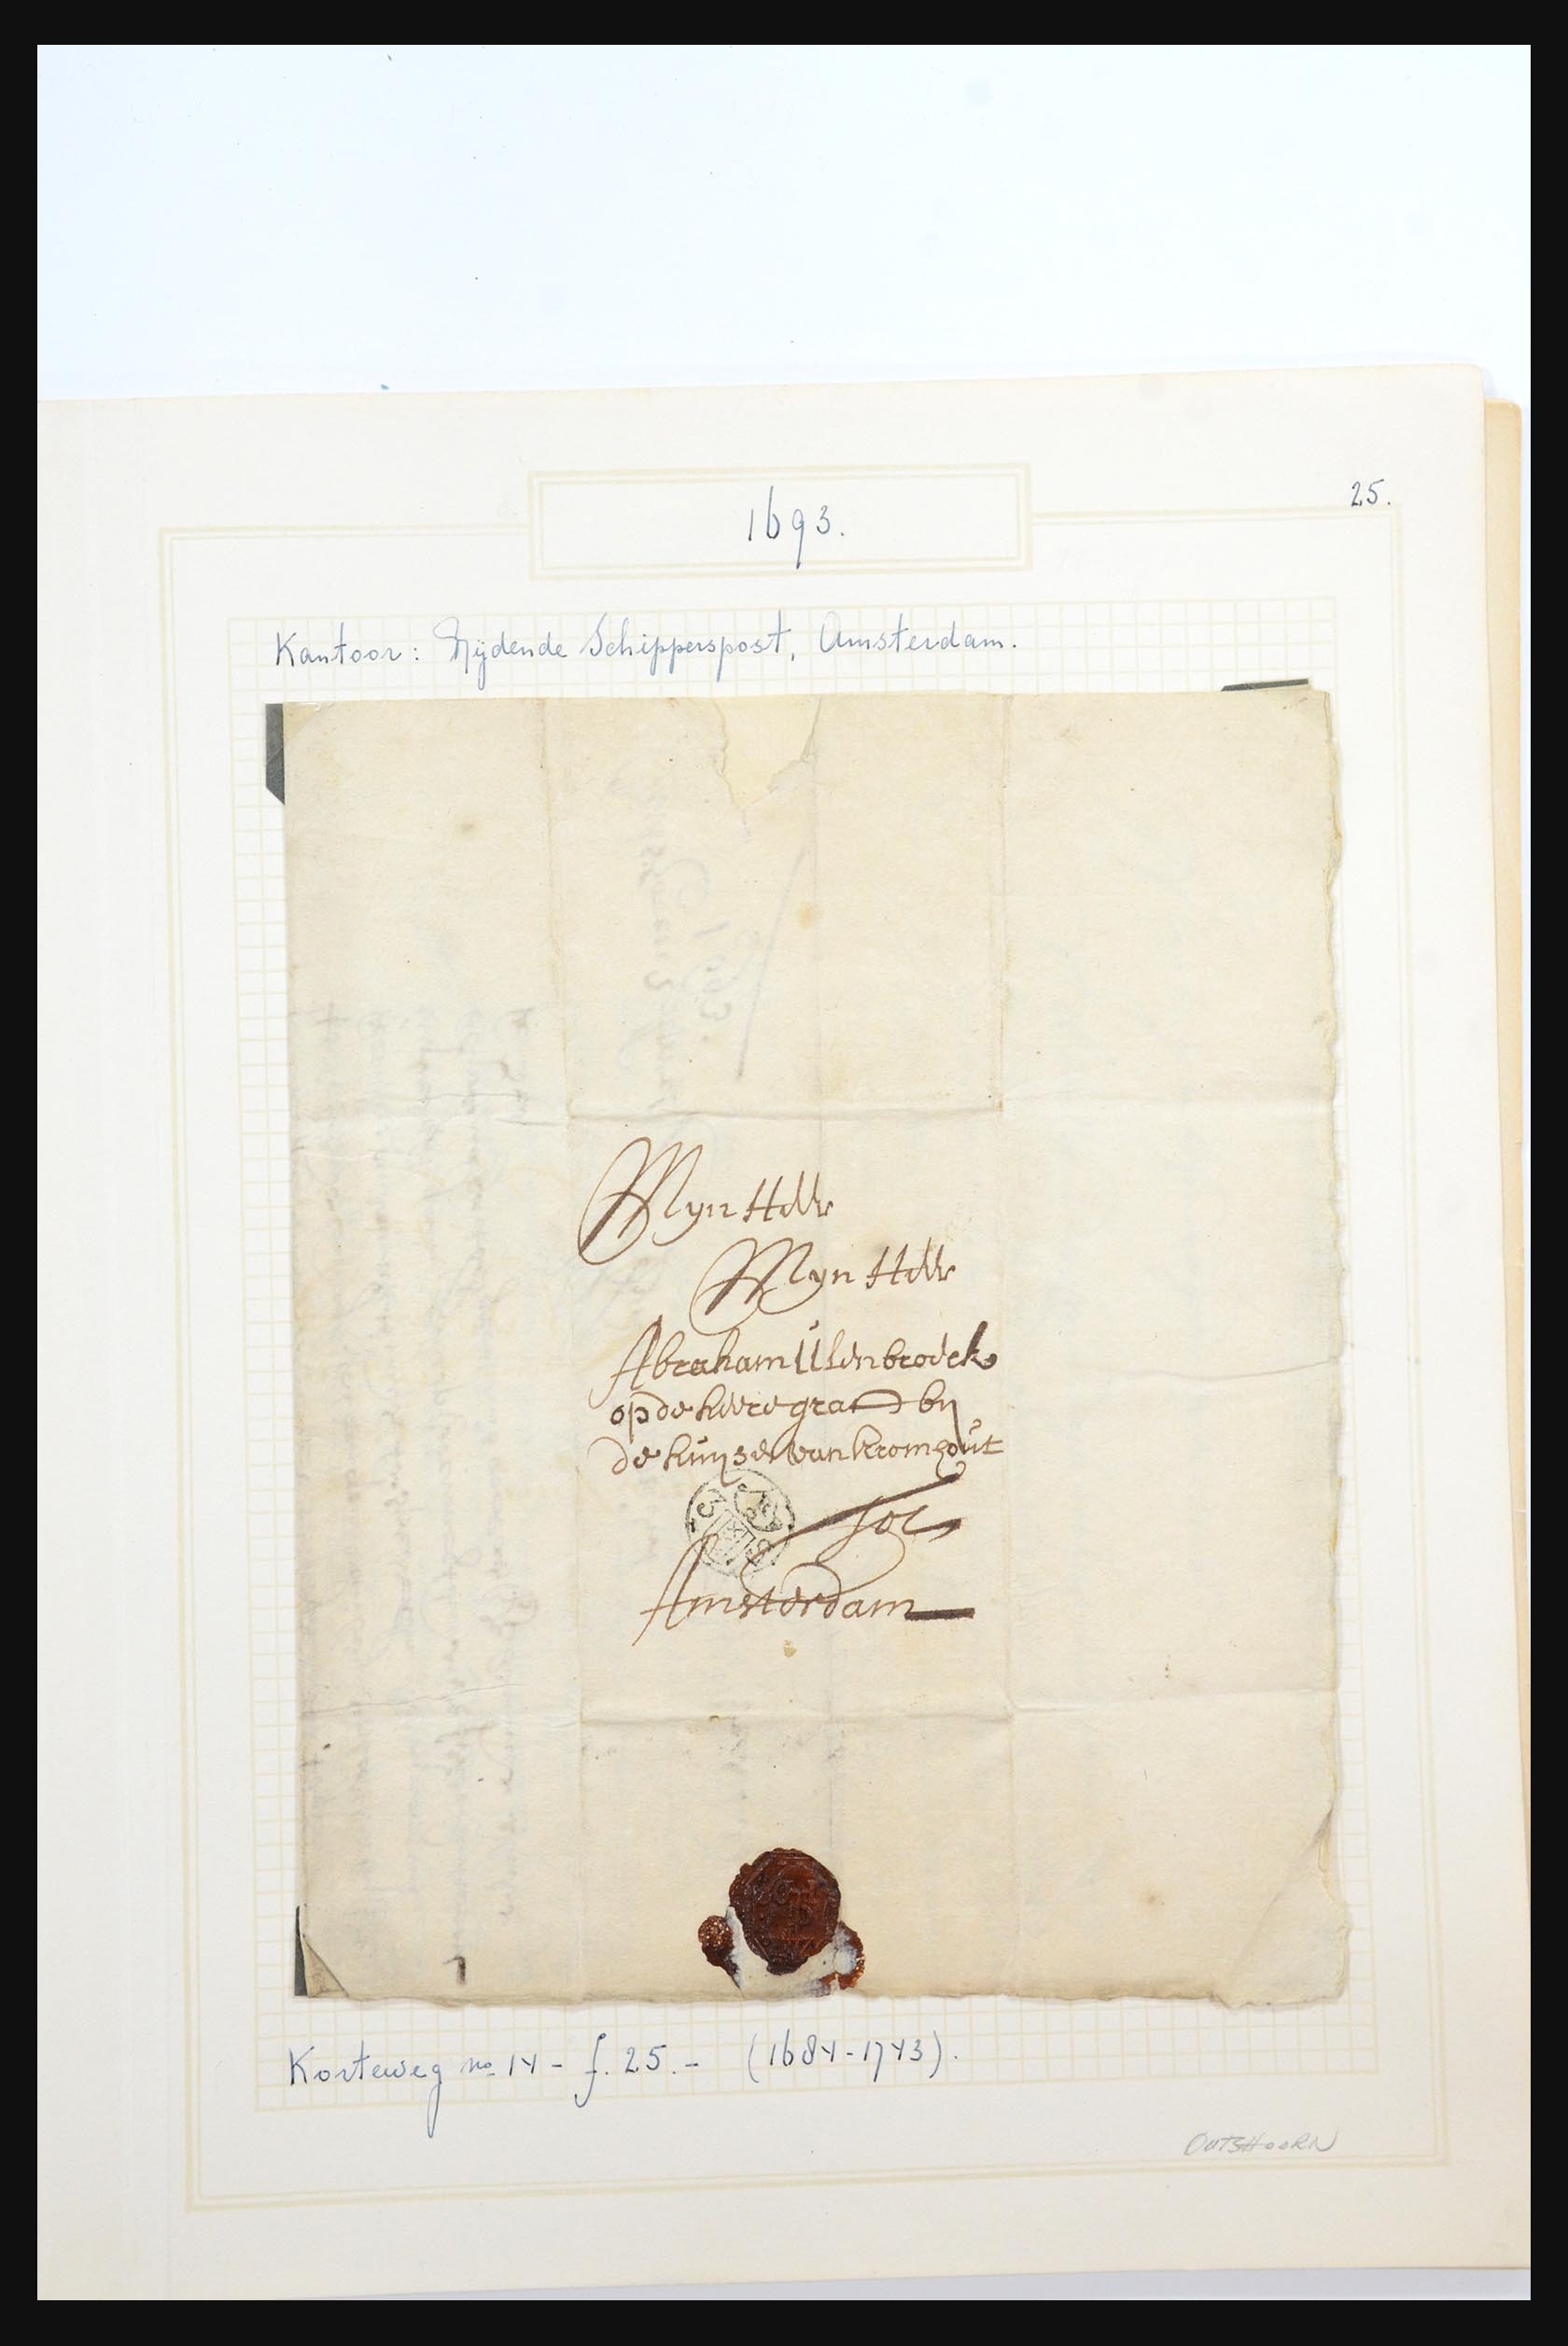 1693.
25.
Kantoor: Rijdende Schipperspost, Amsterdam.
Myn Heer
Myn Heer
Abraham Ulenbroek
op de heere graft by
de huyse van kromhout
tot
Amsterdam
Korteweg no 14 - f. 25.- (1684-1743).
OUTSHOORN